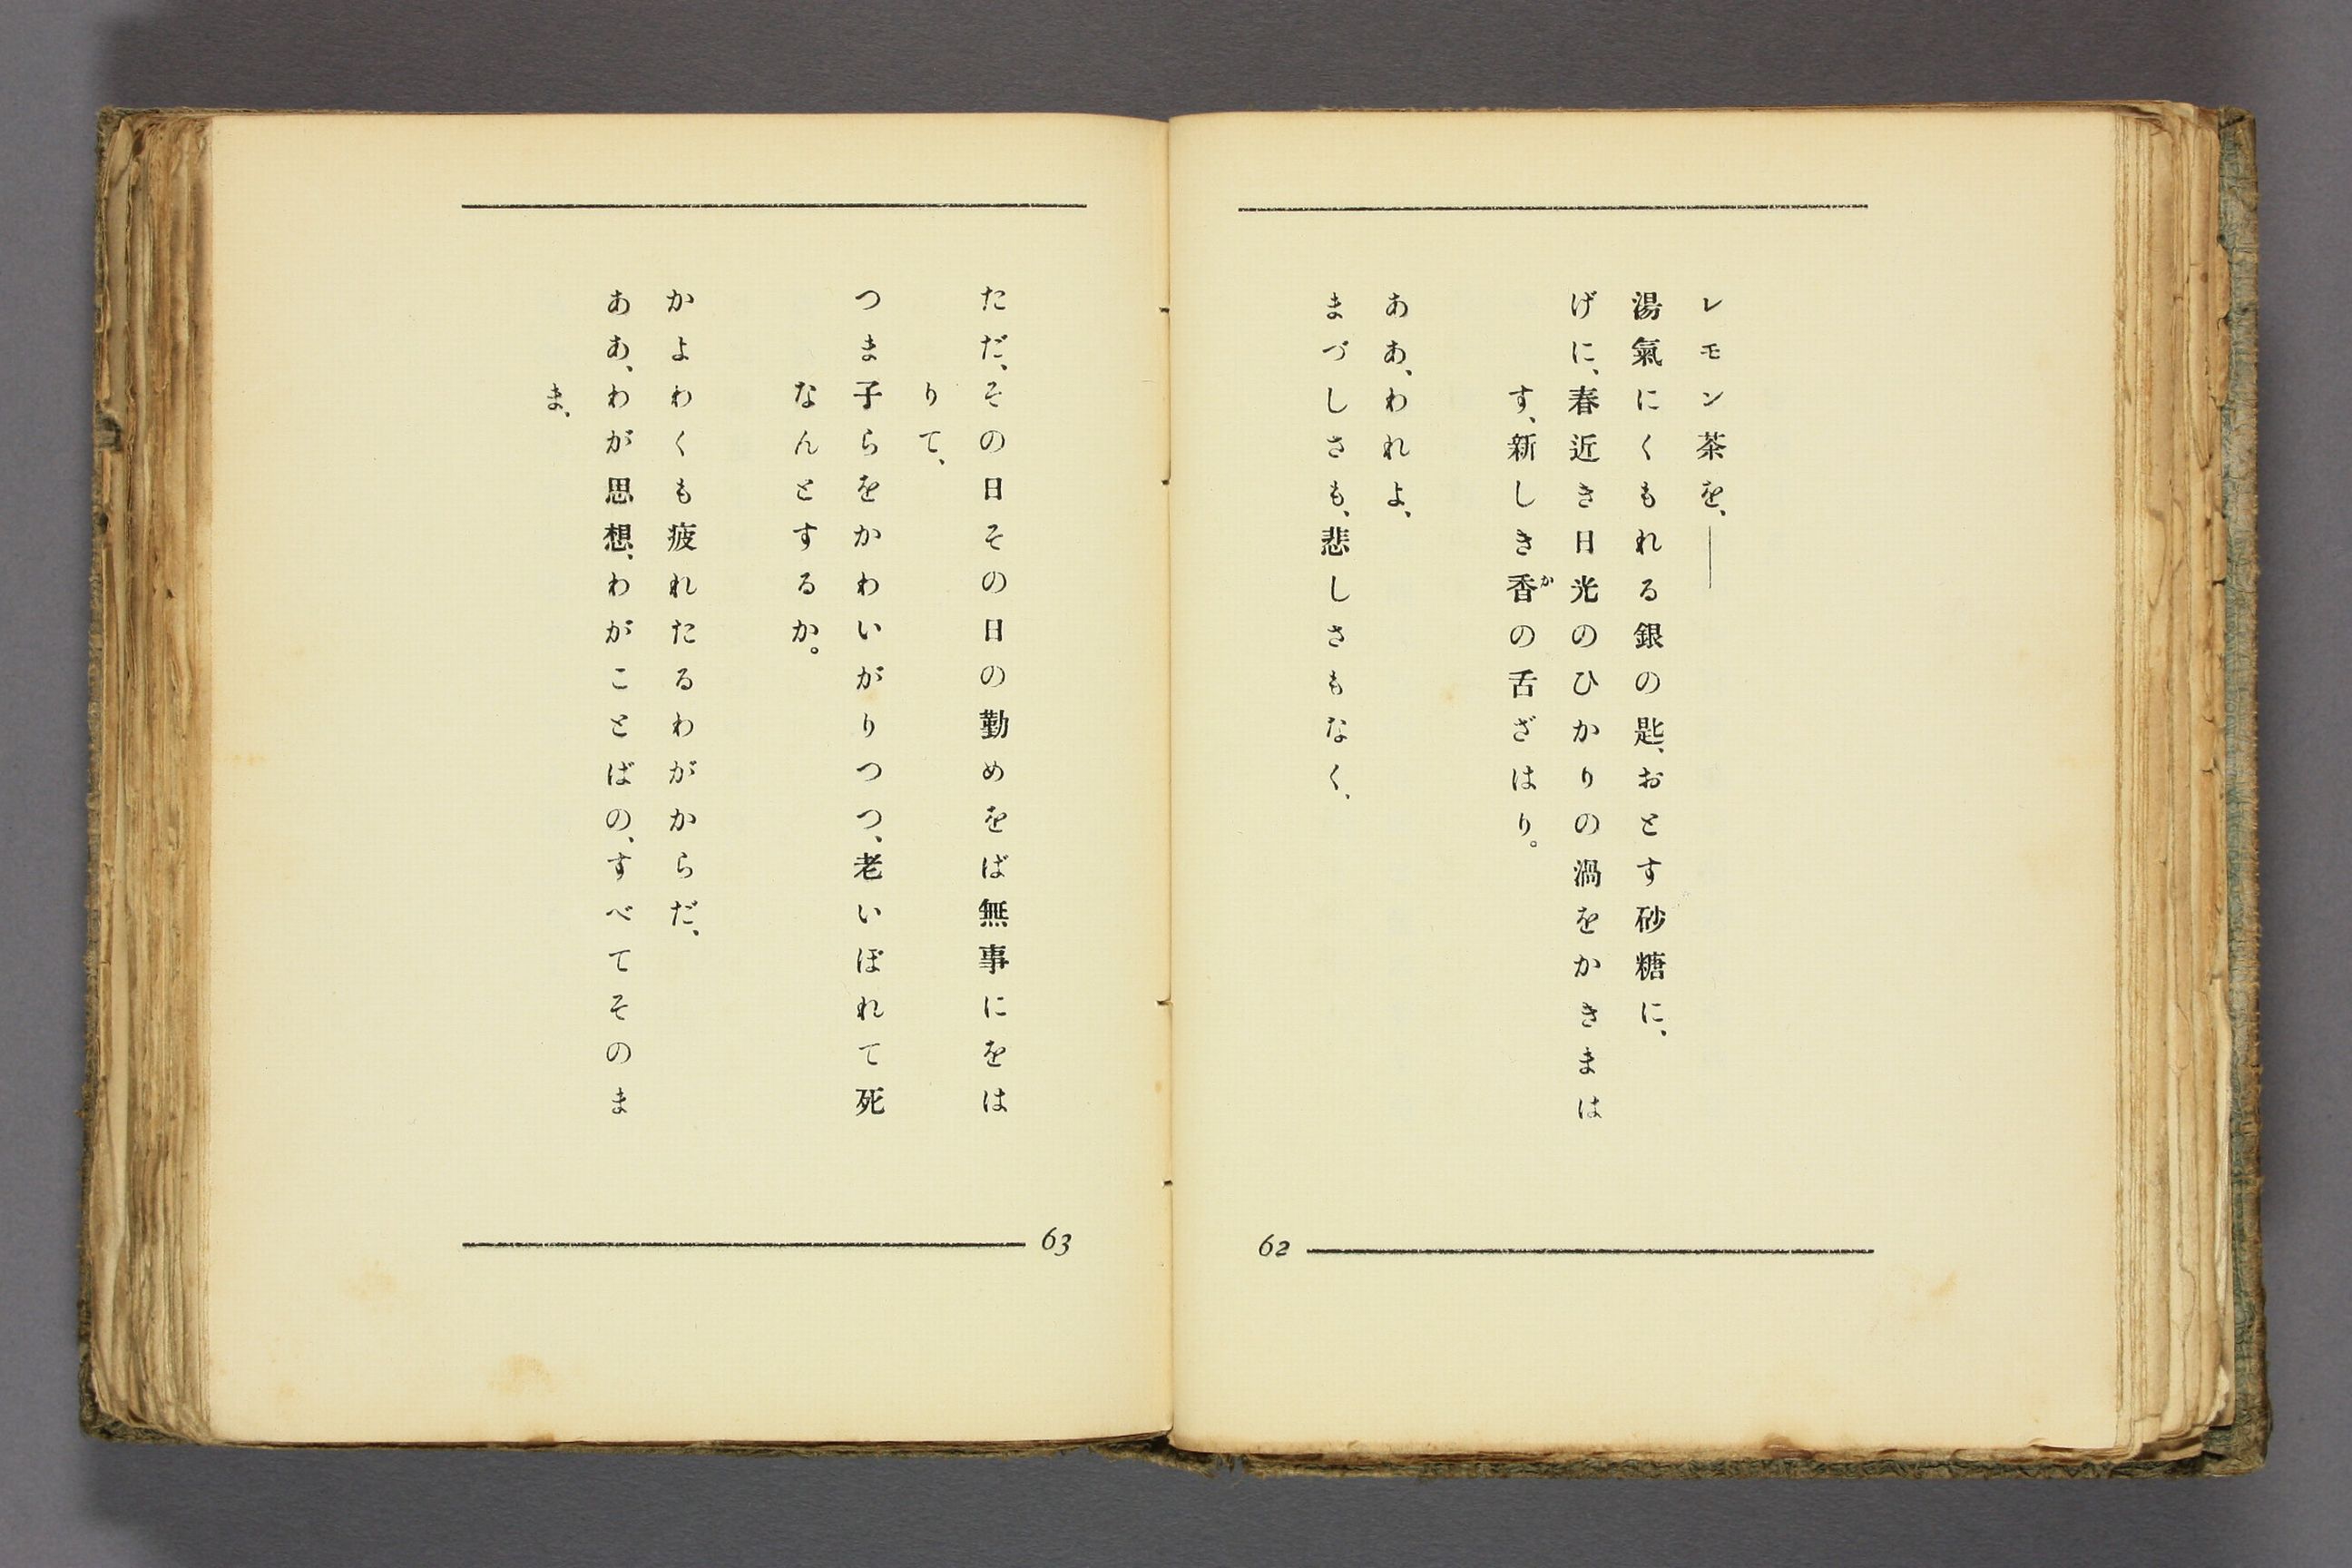 レモン茶を、――
湯氣にくもれる銀の匙、おとす砂糖に、
げに、春近き日光のひかりの渦をかきまは
す、新しき香の舌ざはり。
か
ああ、われよ、
まづしさも、悲しさもなく、
62
ただ、その日その日の勤めをば無事にをは
りて、
つま子らをかわいがりつつ、老いぼれて死
なんとするか。
かよわくも疲れたるわがからだ、
ああ、わが思想、わがことばの、すべてそのま
ま、
63